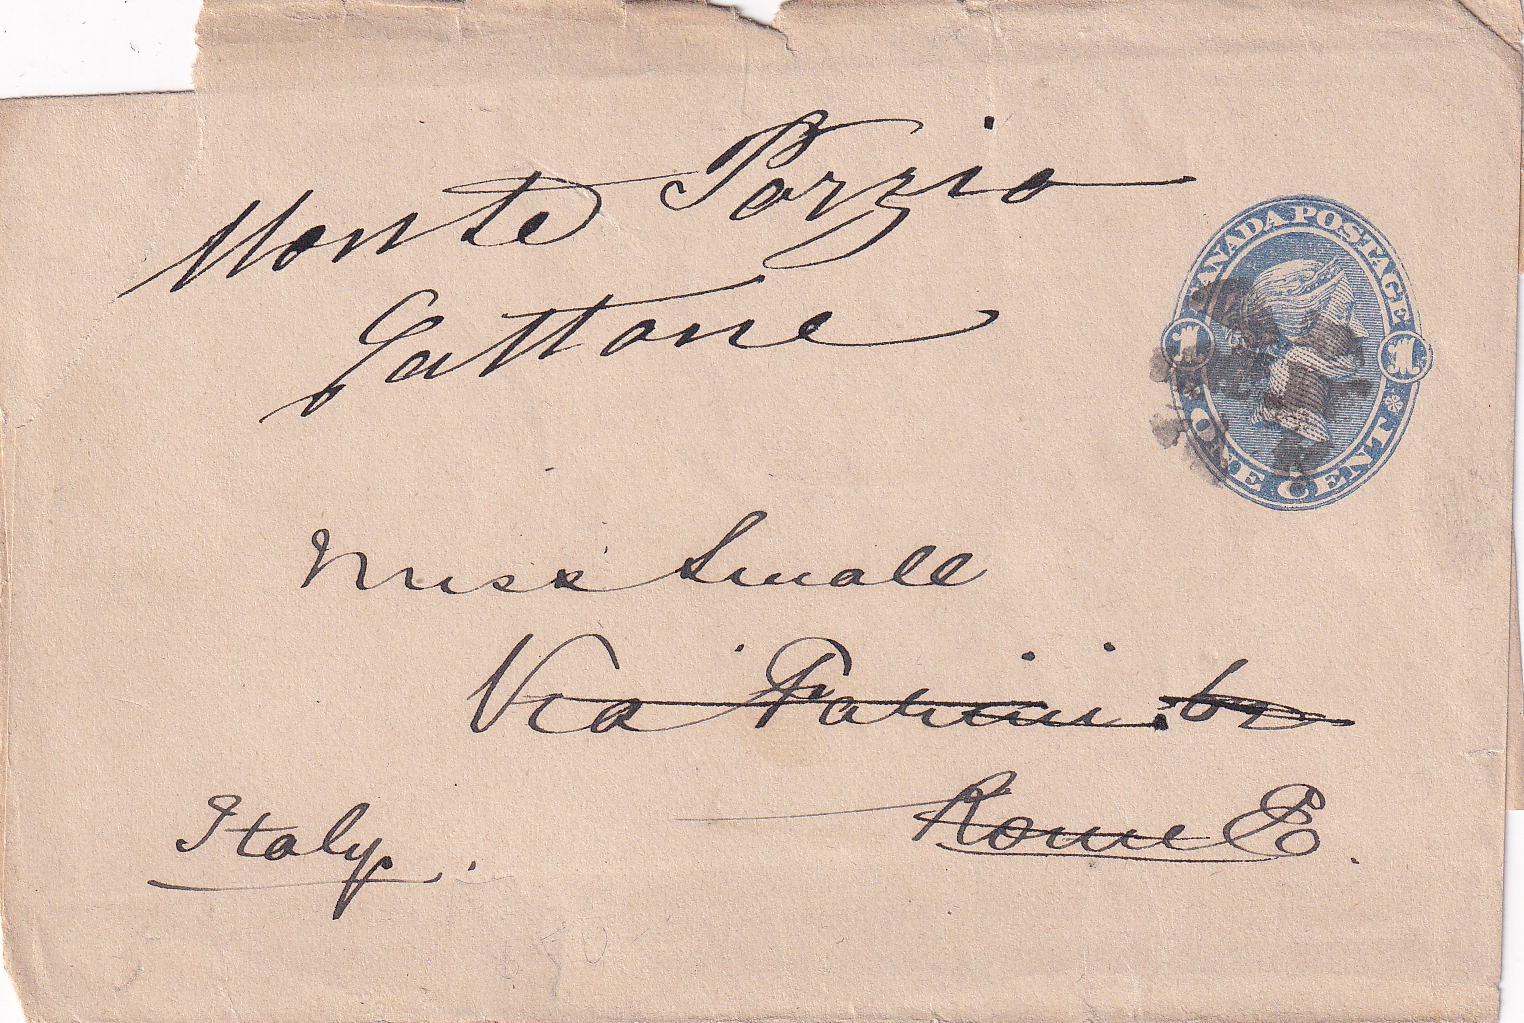 Monte Porzio
Cattone
CANADA POSTAGE
1 1
ONE CENT
Miss Small
Via Farini
Rome E.
Italy.